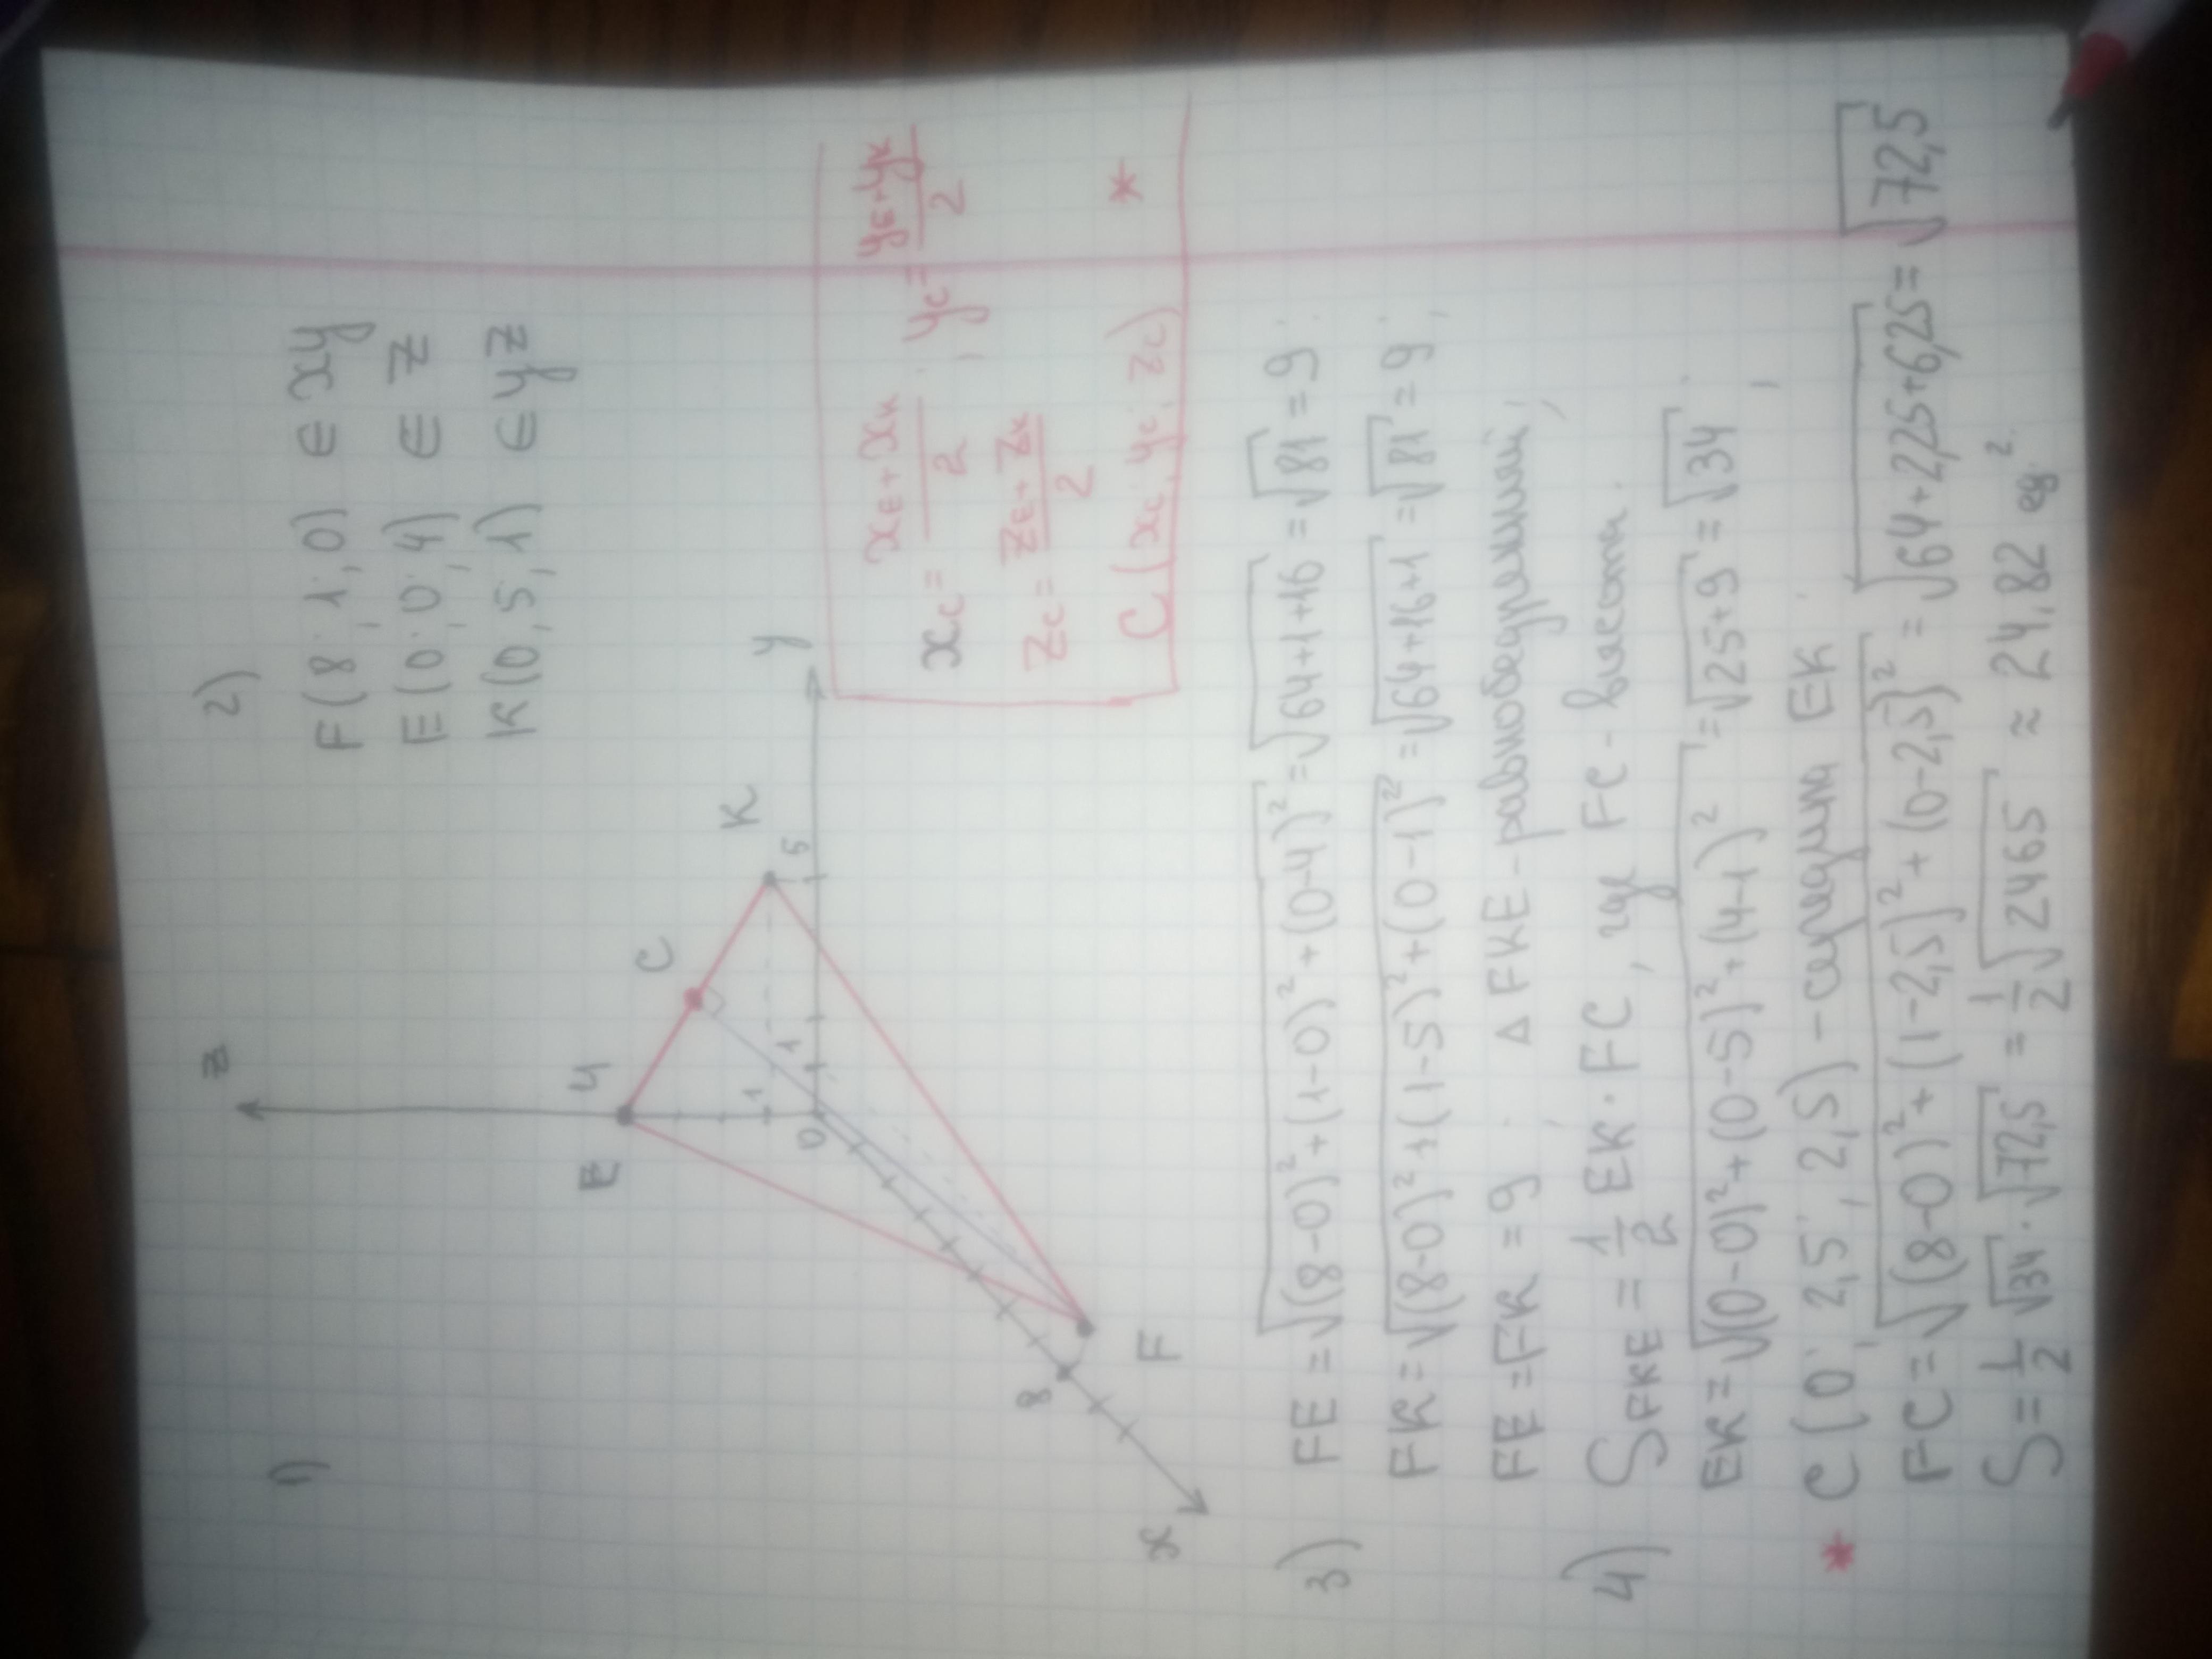 1)
z
E 4
C
K
1
1
0
5
y
8
F
x
2)
F(8; 1; 0) ∈ xy
E(0; 0; 4) ∈ z
K(0; 5; 1) ∈ yz
x_C = (x_E + x_K)/2 ; y_C = (y_E + y_K)/2
z_C = (z_E + z_K)/2
C(x_C; y_C; z_C) *
3) FE = √((8-0)² + (1-0)² + (0-4)²) = √(64+1+16) = √81 = 9;
FK = √((8-0)² + (1-5)² + (0-1)²) = √(64+16+1) = √81 = 9;
FE = FK = 9; △FKE - равнобедренный;
4) S_FKE = 1/2 EK · FC, где FC - высота.
EK = √((0-0)² + (0-5)² + (4-1)²) = √(25+9) = √34;
* C(0; 2,5; 2,5) - середина EK;
FC = √((8-0)² + (1-2,5)² + (0-2,5)²) = √(64+2,25+6,25) = √72,5
S = 1/2 √34 · √72,5 = 1/2 √2465 ≈ 24,82 ед.²